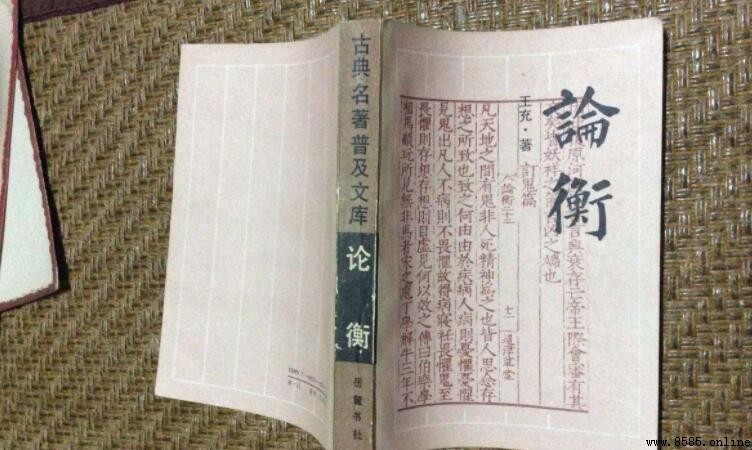 古典名著普及文库
论衡
岳麓书社
論衡
王充·著
言興衰存亡帝王際會審有其
凶之端也
訂鬼篇
十二
通津草堂
凡天地之間有鬼非人死精神爲之也皆人思念存
想之所致也致之何由由於疾病人病則憂懼憂懼
見鬼出凡人不病則不畏懼故得病寢衽畏懼鬼至
畏懼則存想存想則目虛見何以效之傳曰伯樂學
相馬顧玩所見無非馬者宋之庖丁學解牛三年不
www.8585.online